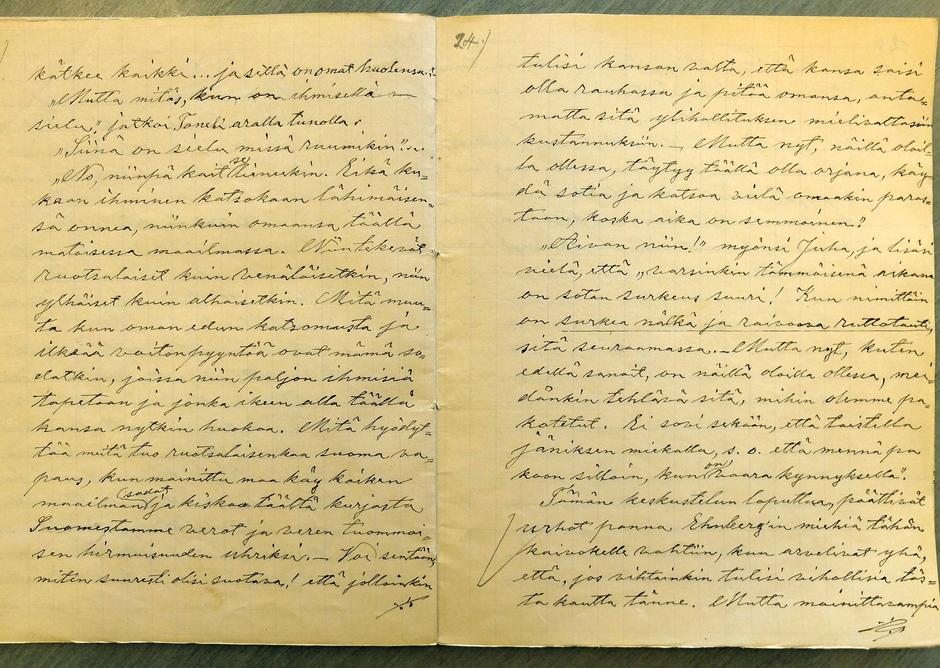 kätkee kaikki... ja sillä on omat huolensa."
„Mutta mitäs, kun on ihmisellä —
sielu", jatkoi Taneli aralla tunolla.
„Siinä on sielu missä ruumiskin"...
„No, niinpä kait se lienekin. Eikä ku=
kaan ihminen katsokaan lähimäisen=
sä onnea, niinkuin omaansa täällä
matoisessa maailmassa. Niin tekevät
ruotsalaiset kuin venäläisetkin, niin
ylhäiset kuin alhaisetkin. Mitä muu=
ta kun oman edun katsomusta ja
ilkeää voitonpyyntöä ovat nämä so=
datkin, joissa niin paljon ihmisiä
tapetaan ja jonka ikeen alla täällä
kansa nytkin huokaa. Mitä hyödyt=
tää meitä tuo ruotsalaisenkaa suoma va=
paus, kun mainittu maa käy kaiken
maailman sodat ja kiskoo täältä kurjasta
Suomestamme verot ja veren tuommoi=
sen hirmuisuuden uhriksi. — Voi sentään,
miten suuresti olisi suotava! että jolloinkin
24./
tulisi kansan valta, että kansa saisi
olla rauhassa ja pitää omansa, anta=
matta sitä ylihallituksen mielivaltasiin
kustannuksiin. — Mutta nyt, näillä oloil=
la ollessa, täytyy täällä olla orjana, käy=
dä sotia ja katsoa vielä omaakin paras=
taan, koska aika on semmoinen."
„Aivan niin!" myönsi Juha, ja lisäsi
vielä, että „varsinkin tämmöisenä aikana
on sotan surkeus suuri! Kun nimittäin
on surkea nälkä ja raivoova ruttotauti,
sitä seuraamassa. — Mutta nyt, kuten
edellä sanoit, on näillä oloilla ollessa, mei=
dänkin tehtävä sitä, mihin olemme pa=
kotetut. Ei sovi sekään, että taistella
jäniksen miekalla, s. o. että mennä pa
koon silloin, kun on vaara kynnyksellä".
Tämän keskustelun loputtua, päättivät
urhot panna Ehnberg'in miehiä tähän
kaivokelle vahtiin, kun arvelivat yhä,
että, jos vihtainkin tulisi vihollisia täs=
tä kautta tänne. Mutta mainittavampia